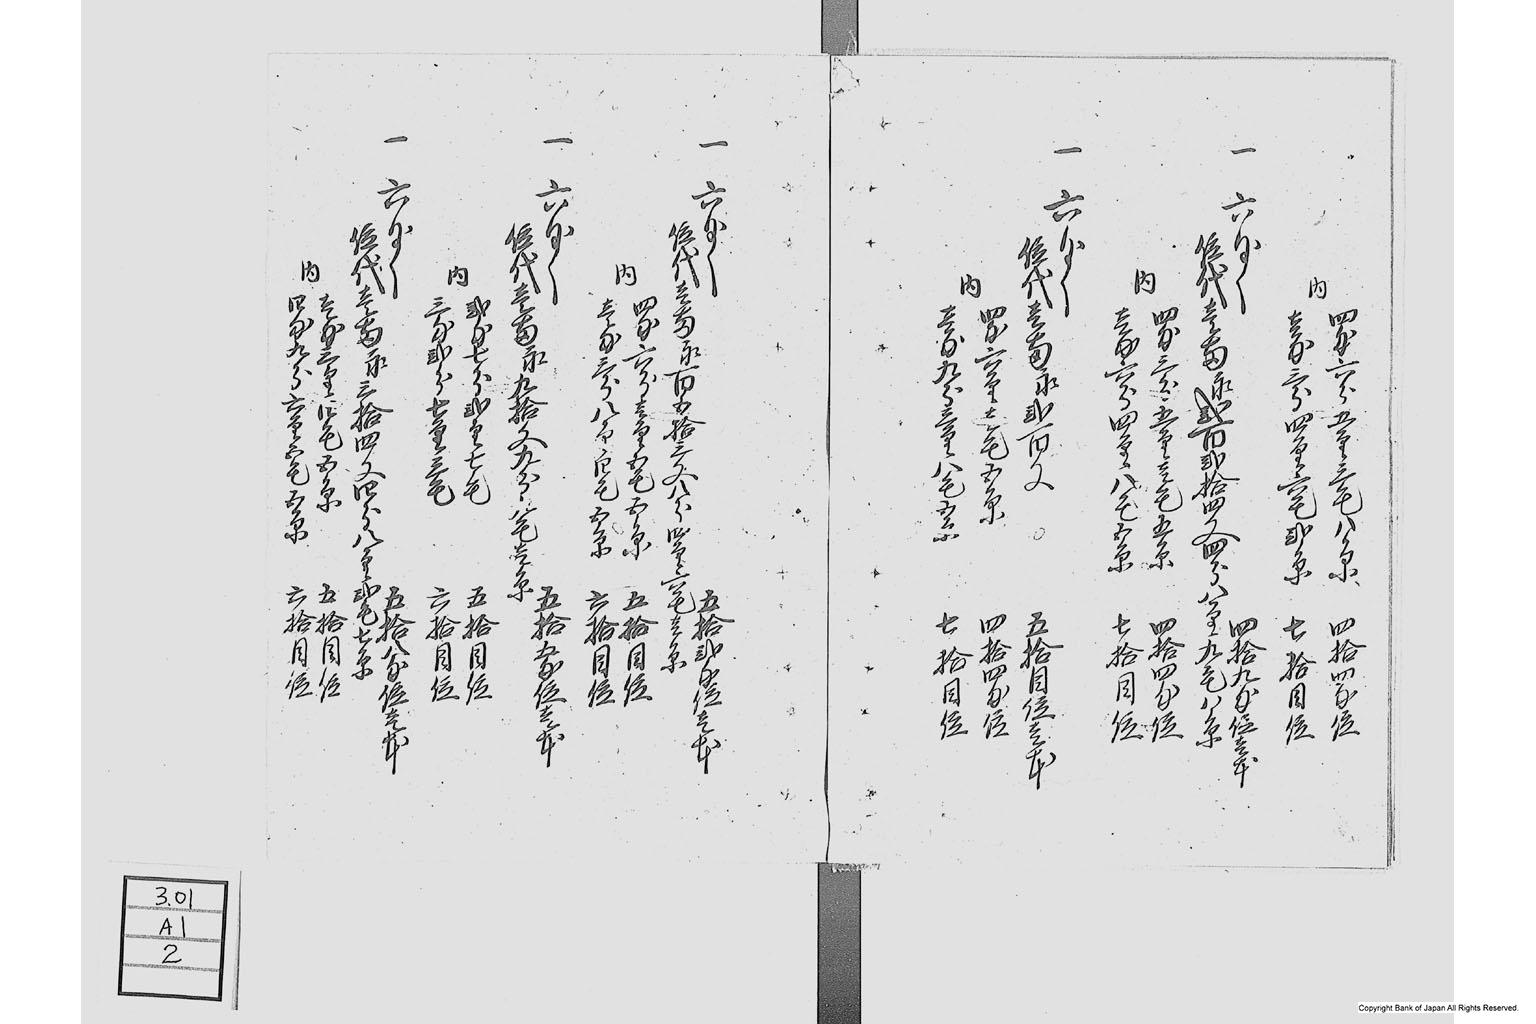 内
四匁六分五厘三毛八糸 四拾四匁位
壱匁三分四厘六毛弐糸 七拾目位
一 六匁
位代壱両永弐百弐拾四文四分八厘九毛八糸
四拾九匁位壱本
内
四匁三分五厘壱毛五糸 四拾四匁位
壱匁六分四厘八毛五糸 七拾目位
一 六匁
位代壱両永弐百文
五拾目位壱本
内
四匁六厘七毛五糸 四拾四匁位
壱匁九分三厘八毛五糸 七拾目位
一 六匁
位代壱両永百五拾三文八分四厘六毛壱糸
五拾弐匁位壱本
内
四匁六分壱厘五毛五糸 五拾目位
壱匁三分八厘四毛五糸 六拾目位
一 六匁
位代壱両永九拾文九分八毛壱糸
五拾五匁位壱本
内
弐匁七分弐厘七毛 五拾目位
三匁弐分七厘三毛 六拾目位
一 六匁
位代壱両永三拾四文四分八厘弐毛七糸
五拾八匁位壱本
内
壱匁三厘四毛五糸 五拾目位
四匁九分六厘五毛五糸 六拾目位
3.01
A1
2
Copyright Bank of Japan All Rights Reserved.